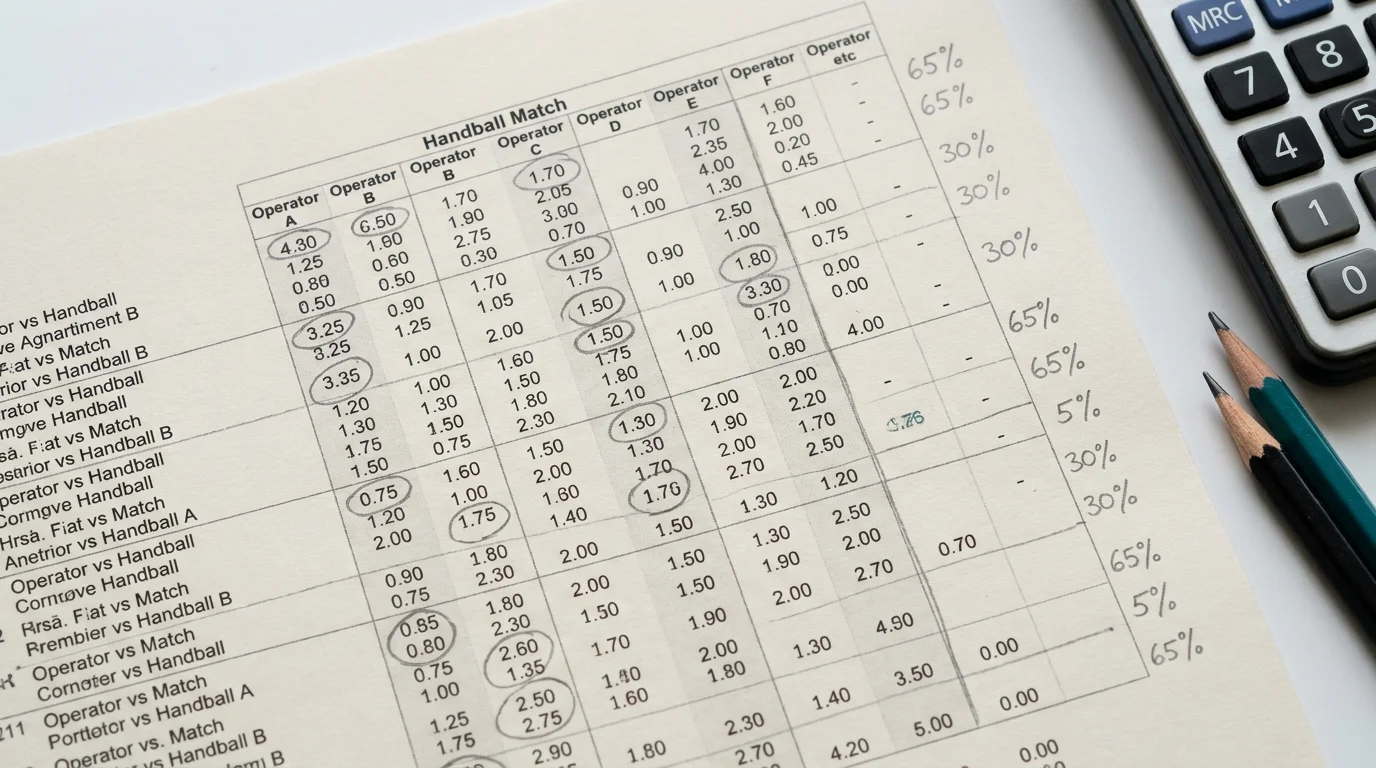 Handball Match
Operator A Operator B Operator B Operator C Operator D Operator E Operator F Operator etc
4.30 6.50 1.70 1.70 1.70 1.60 - 65%
1.25 1.90 1.90 2.05 0.90 2.35 2.00 - 65%
0.60 2.75 3.00 1.00 4.00 0.20 - 30%
0.50 0.50 0.30 0.70 1.30 0.45 - 30%
or vs Handball 3.25 0.90 1.70 1.50 0.90 2.50 1.00 - 30%
ve Agnartiment B 3.25 1.25 1.05 1.75 1.00 1.00 0.75 -
at vs Match 3.35 1.00 2.00 1.50 1.80 0.00 -
rior vs Handball B 1.20 1.00 1.60 1.50 1.00 3.30 0.00 - 65%
rator vs Handball 1.30 1.30 1.50 1.75 1.00 0.70 4.00 - 65%
mgve Handball 1.75 1.50 1.80 1.80 1.10 - 5%
sä. Fiat vs Match 1.50 0.75 2.30 2.10 2.00 0.80 - 30%
estrior vs Handball B 0.75 1.60 1.50 1.30 1.90 2.00 - 30%
perator vs Handball 1.20 1.00 2.00 1.30 2.00 2.20
Cormgve Handball 2.00 1.75 1.60 1.70 2.70 1.70
Hrsä. Fiat vs Match 1.40 1.76 2.50 - 65%
Anetrior vs Handball A 0.90 1.80 2.00 1.50 1.30 1.20 5%
Operator vs Handball 0.75 2.30 2.00 1.50 1.30 2.50 0.70 65%
Handball 0.85 1.80 1.50 1.50 1.90 2.00
Fiat vs Match 0.80 2.30 1.70 1.90 2.00 2.70
vs Handball B 0.75 2.60 2.00 1.30 4.90 0.00
Operator vs Match 1.00 1.35 1.60 1.80 1.40 3.50 0.00
vs Handball 1.25 2.50 2.30 5.00 0.00
211 Operator vs Match 1.75 2.75 1.80 2.70 4.20
vs Handball A 2.90
Operator vs. Match
vs Handball B
MRC
7 8
4 5
1
0